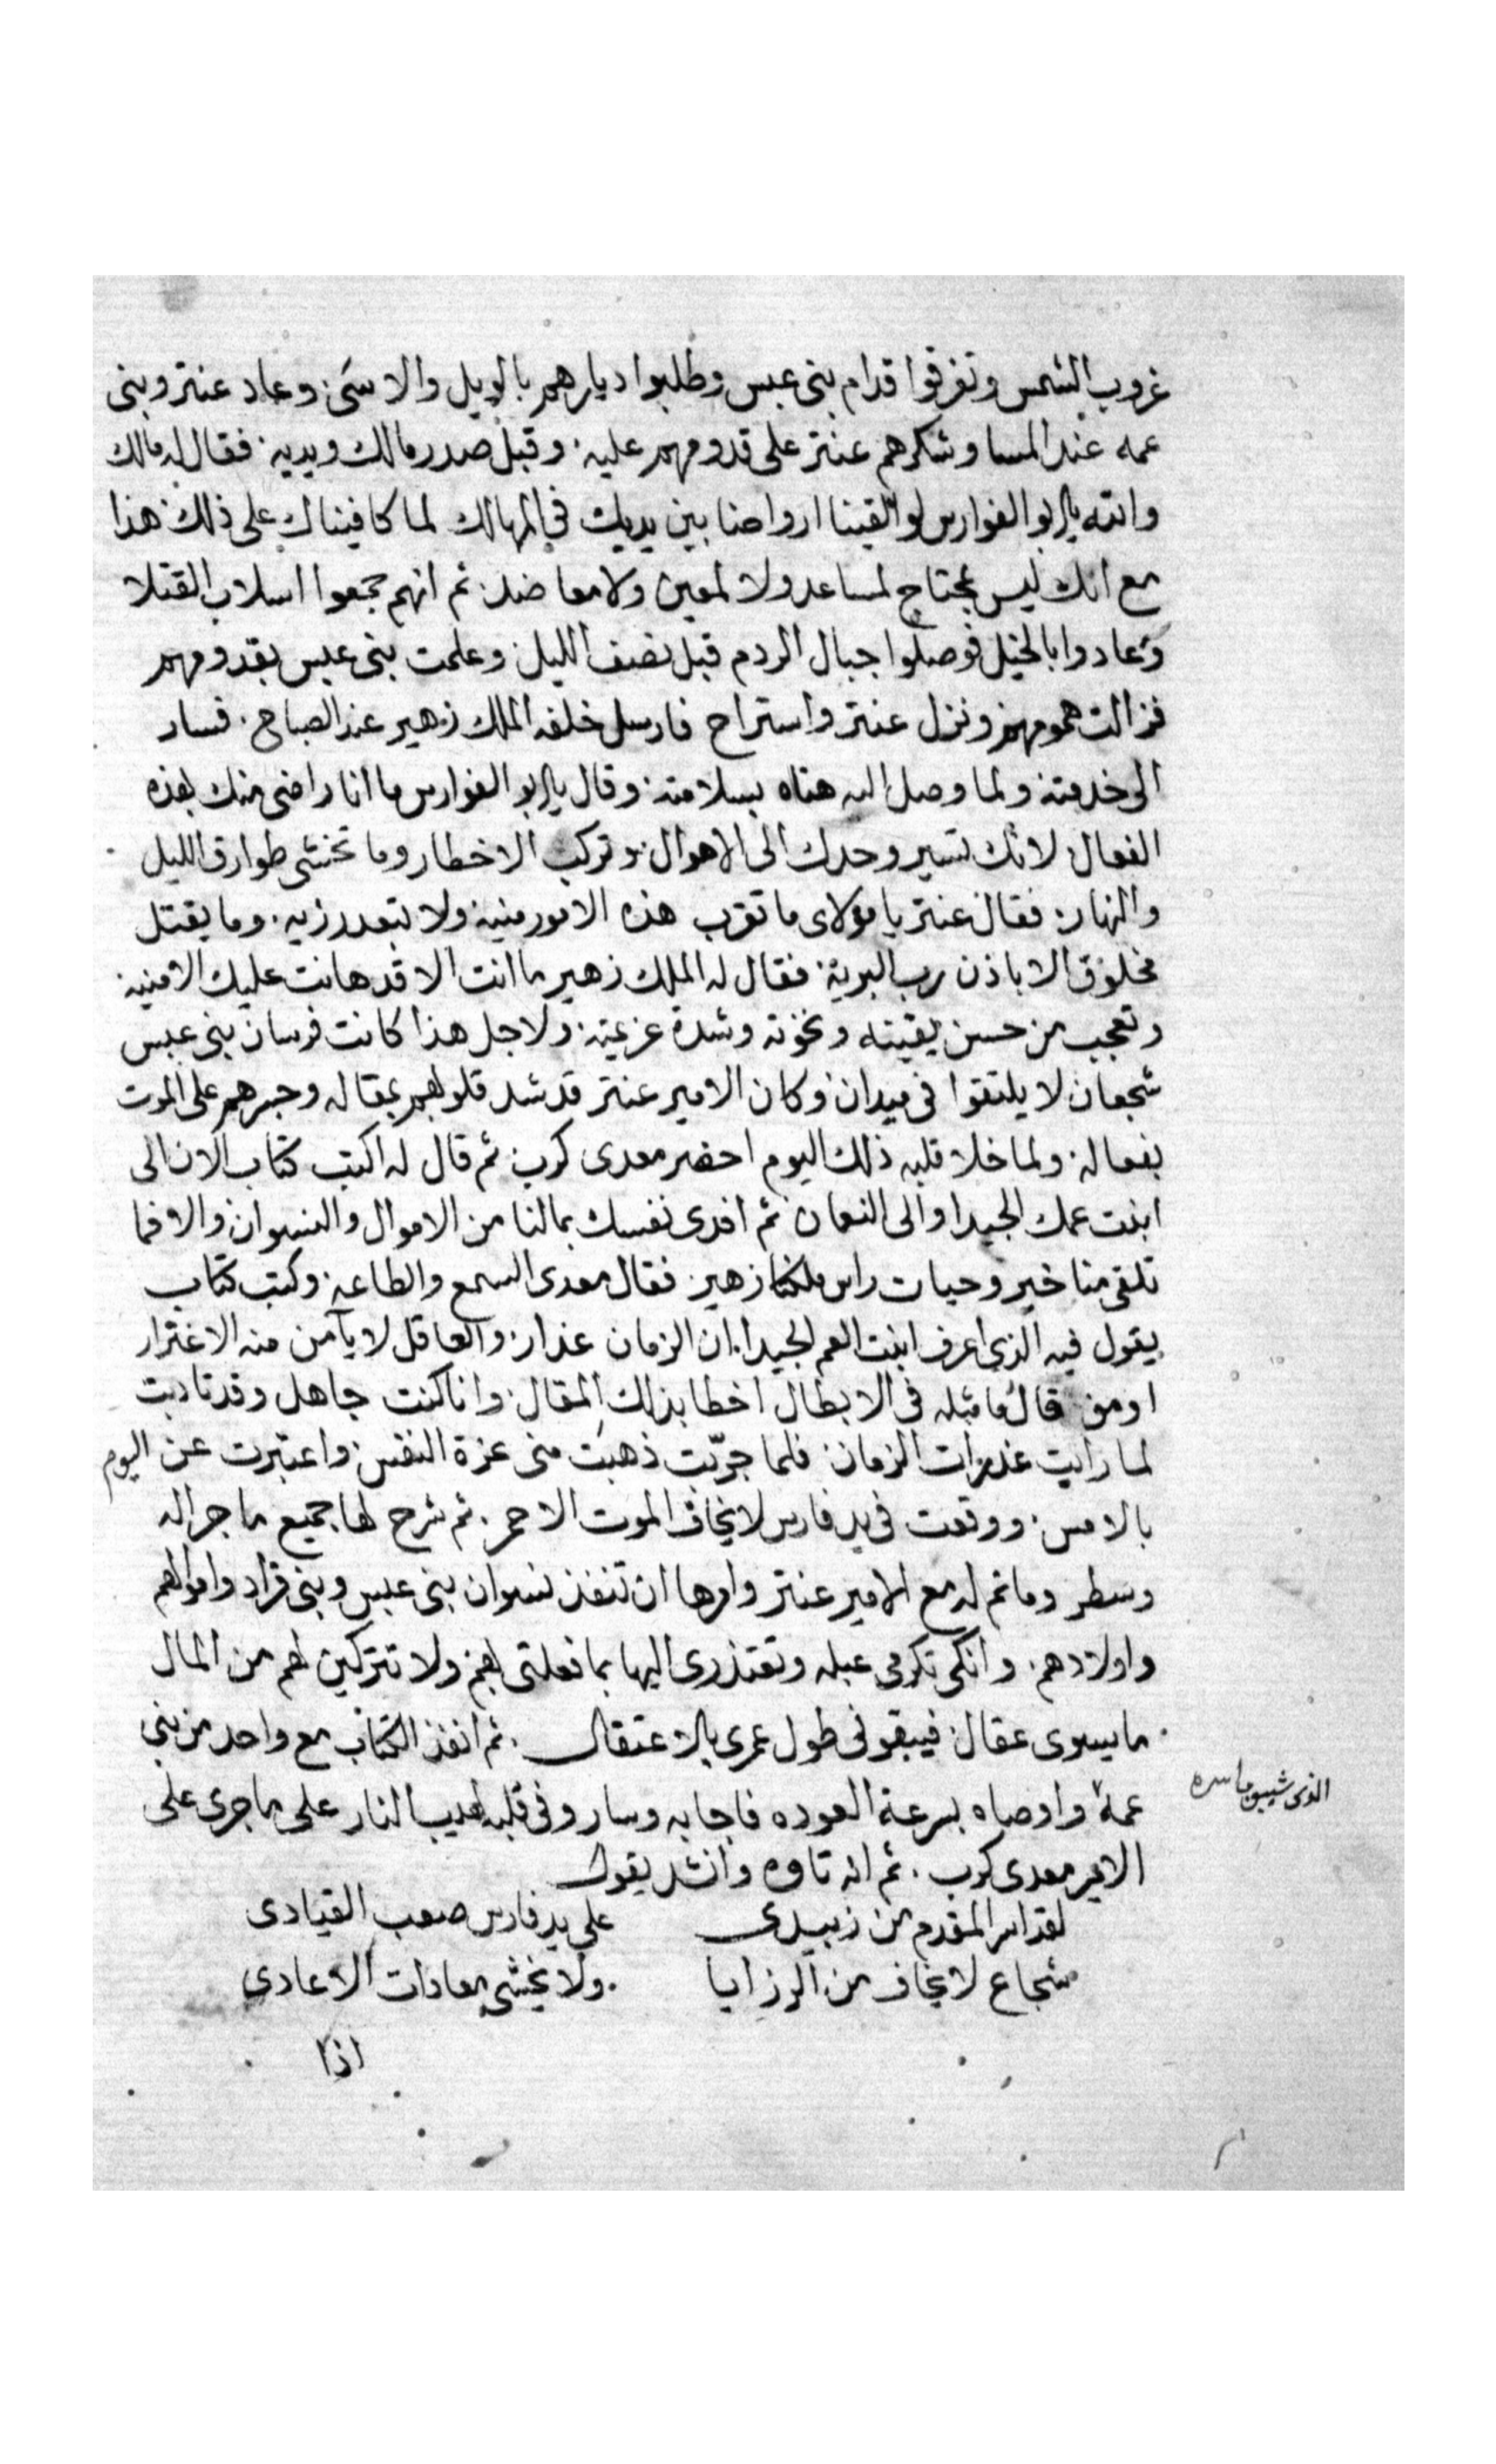 غروب الشمس وتفرقوا قدام بنى عبس وطلبوا ديارهم بالويل والاسى وعاد عنتر وبنى
عمه عند المسا وشكرهم عنتر على قدومهم عليه وقبل صدر مالك ويديه فقال له مالك
والله يابو الفوارس لو القينا ارواحنا بين يديك فى المهالك لما كافيناك على ذلك هذا
مع انك ليس بمحتاج لمساعد ولا لمعين ولا معاضد ثم انهم جمعوا اسلاب القتلا
وعادوا بالخيل فوصلوا جبال الردم قبل نصف الليل وعلمت بنى عبس بقدومهم
فزالت همومهم ونزل عنتر واستراح فارسل خلفه الملك زهير عند الصباح فسار
الى خدمته ولما وصل اليه هناه بسلامته وقال يابو الفوارس ما انا راضى منك بهذه
الفعال لانك تسير وحدك الى الاهوال وتركب الاخطار وما تخشى طوارق الليل
والنهار فقال عنتر يا مولاى ما تقرب هذه الامور منيه ولا تبعد رزيه وما يقتل
مخلوق الا باذن رب البرية فقال له الملك زهير ما انت الا قد هانت عليك الامنيه
وتعجب من حسن يقينه ونخوته وشدة عزيمته ولاجل هذا كانت فرسان بنى عبس
شجعان لا يلتقوا فى ميدان وكان الامير عنتر قد شد قلوبهم بمقاله وجسرهم على الموت
بفعاله ولما خلا قلبه ذلك اليوم احضر معدى كرب ثم قال له اكتب كتاب الان الى
ابنت عمك الجيدا والى النعمان ثم افدى نفسك بمالنا من الاموال والنسوان والا فما
تلقى منا خير وحيات راس ملكنا زهير فقال معدى السمع والطاعه وكتب كتاب
يقول فيه الذى اعرف ابنت العم الجيدا ان الزمان غدار والعاقل لا يآمن منه الاغترار
او من قال ما مثله فى الابطال اخطا بذلك المقال وانا كنت جاهل وقد تادبت
لما رايت غدرات الزمان فلما جربت ذهبت منى عزة النفس واعتبرت عن اليوم
بالامس ووقعت فى يد فارس لا يخاف الموت الاحمر ثم شرح لها جميع ما جرا له
وسطر وما تم له مع الامير عنتر وامرها ان تنفذ نسوان بنى عبس وبنى قراد واموالهم
واولادهم وانكى تكرمى عبله وتعتذرى اليها بما فعلتى بهم ولا تتركين لهم من المال
ما يسوى عقال فيبقونى طول عمرى بالاعتقال ثم انفذ الكتاب مع واحد من بنى
عمه واوصاه بسرعة العوده فاجابه وسار وفى قلبه لهيب النار على ما جرى على
الذى شيبوب اسره
الامير معدى كرب ثم انه تاوه وانشد يقول
لقد اسر المقدم من زبيدى على يد فارس صعب القيادى
شجاع لا يخاف من الرزايا ولا يخشى معادات الاعادى
اذا